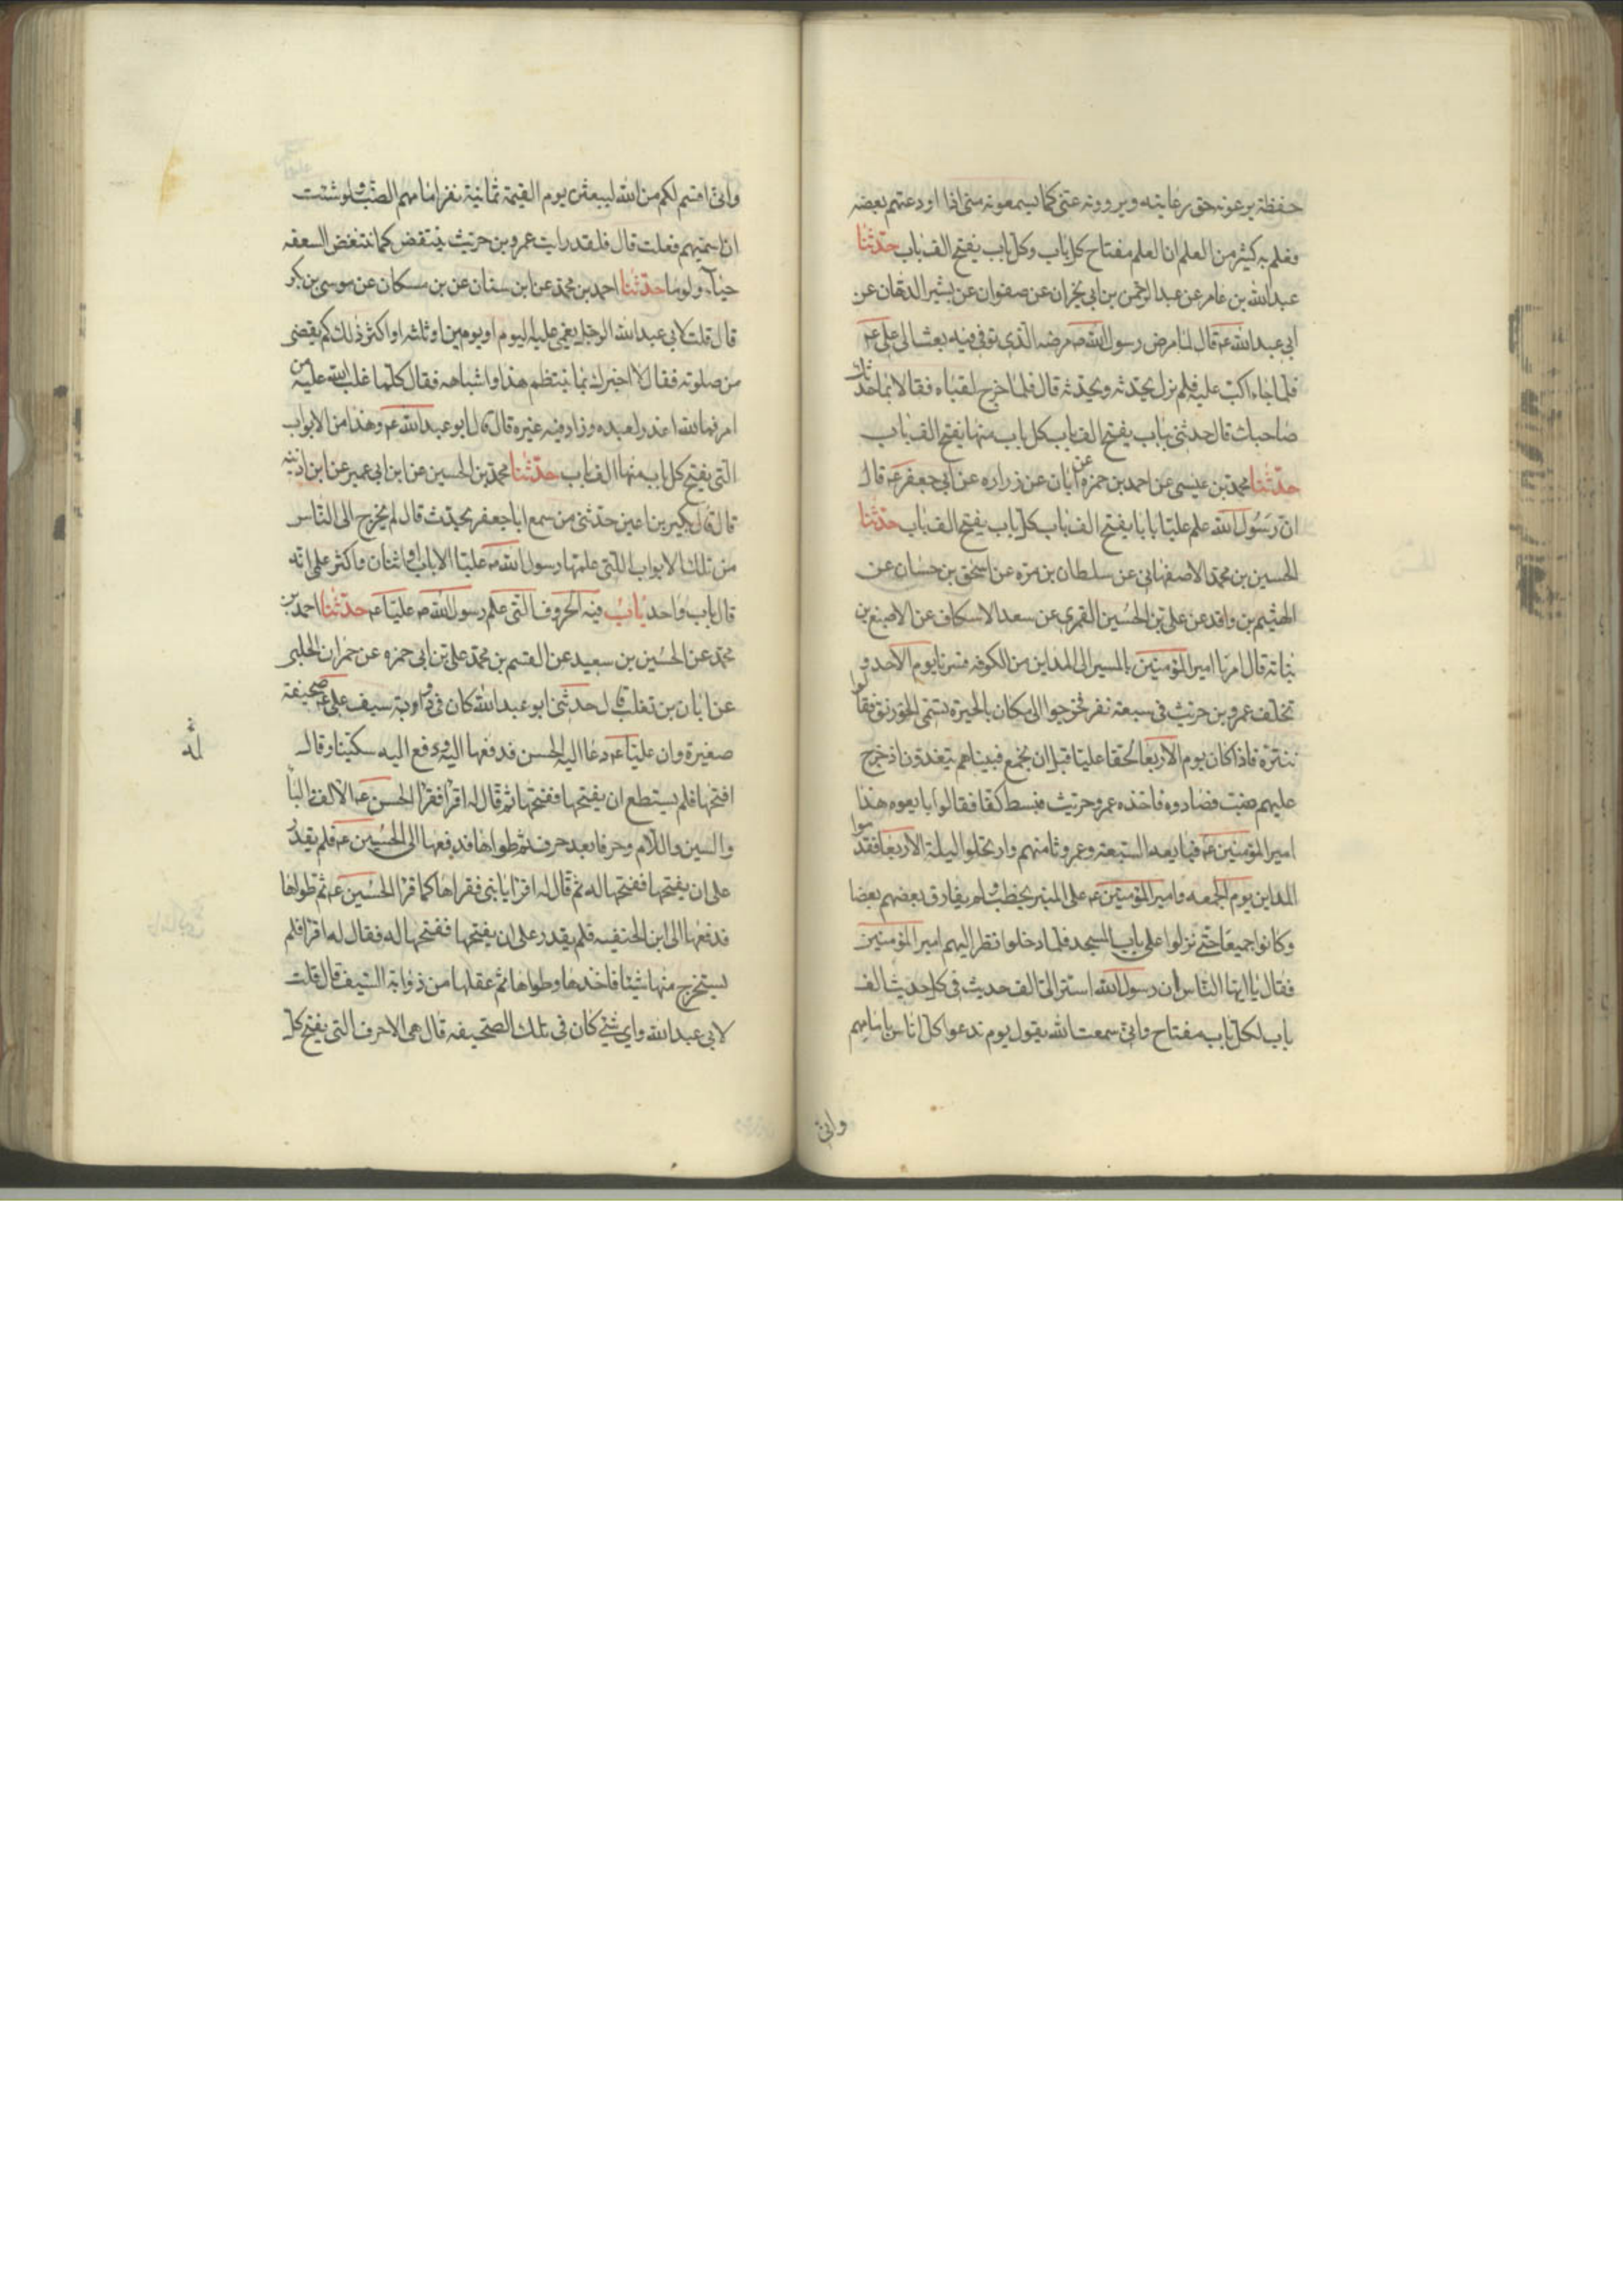 حفظة يرعونه حق رعايته ويروونه عنى كما يسمعونه منى اذا اودعتهم بعضه
فعلم به كثير من العلم ان العلم مفتاح كل باب وكل باب يفتح الف باب حدثنا
عبدالله بن عامر عن عبد الرحمن بن ابى نجران عن صفوان عن بشير الدهان عن
ابى عبدالله عم قال لما مرض رسول الله ص مرضه الذى توفى فيه بعث الى على عم
فلما جاء اكب عليه فلم يزل يحدثه ويحدثه قال فلما خرج لقياه فقالا بما حدثك
صاحبك قال حدثنى بباب يفتح الف باب كل باب منها يفتح الف باب
حدثنا محمد بن عيسى عن احمد بن حمزه عن ابان عن زراره عن ابى جعفر عم قال
ان رسول الله علم عليا بابا يفتح الف باب كل باب يفتح الف باب حدثنا
الحسين بن محمد الاصفهانى عن سلطان بن مره عن اسحق بن حسان عن
الهيثم بن واقد عن على بن الحسين القمرى عن سعد الاسكاف عن الاصبغ بن
نباتة قال امرنا امير المؤمنين بالمسير الى المداين من الكوفه فسرنا يوم الاحد و
تخلف عمرو بن حريث فى سبعة نفر فخرجوا الى مكان بالحيرة يسمى الخورنق فقالوا
نتنزه فاذا كان يوم الاربعا لحقنا عليا قبل ان يجمع فبيناهم يتغدون اذ خرج
عليهم ضب فصادوه فاخذه عمرو حريث فبسط كفا فقالوا بايعوه هذا
امير المؤمنين عم فبايعه السبعة وعمرو ثامنهم وارتحلوا ليلة الاربعا فقدموا
المداين يوم الجمعه وامير المؤمنين عم على المنبر يخطب ولم يفارق بعضهم بعضا
وكانوا جميعا حتى نزلوا على باب المسجد فلما دخلوا نظر اليهم امير المؤمنين
فقال يا ايها الناس ان رسول الله اسر الى الف حديث فى كل حديث الف
باب لكل باب مفتاح وانى سمعت الله يقول يوم ندعوا كل اناس بامامهم
وانى
وانى اقسم لكم من الله ليبعثن يوم القيمة ثمانية نفر امامهم الضب ولو شئت
ان اسميهم فعلت قال فلقد رايت عمرو بن حريث ينتفض كما تنتفض السعفه
حياء ولوما حدثنا احمد بن محمد عن ابن سنان عن بن مسكان عن موسى بن بكر
قال قلت لابى عبدالله الرجل يغمى عليه اليوم او يومين او ثلثه او اكثر ذلك كم يقضى
من صلوته فقال لا اخبرك بما ينتظم هذا واشباهه فقال كلما غلب الله عليه من
امر فالله اعذر لعبده وزاد فيه غيره قال قال ابو عبدالله عم وهذا من الابواب
التى يفتح كل باب منها الف باب حدثنا محمد بن الحسين عن ابن ابى عمير عن ابن اذينه
قال قال بكير بن اعين حدثنى من سمع ابا جعفر يحدث قال لم يخرج الى الناس
من تلك الابواب اللتى علمها رسول الله ص عليا الا باب او اثنان واكثر علمى انه
قال باب واحد باب فيه الحروف التى علم رسول الله ص عليا عم حدثنا احمد بن
محمد عن الحسين بن سعيد عن القسم بن محمد على بن ابى حمزه عن حمران الحلبى
عن ابان بن تغلب قال حدثنى ابو عبدالله كان فى ذوابة سيف على عم صحيفة
صغيرة وان عليا عم دعا اليه الحسن فدفعها اليه ودفع اليه سكينا وقال
له
افتحها فلم يستطع ان يفتحها ففتحها ثم قال له اقرا فقرا الحسن عم الالف والبا
والسين واللام وحرفا بعد حرف ثم طواها فدفعها الى الحسين عم فلم يقدر
على ان يفتحها ففتحها له ثم قال له اقرا يا بنى فقراها كما قرا الحسين عم ثم طواها
فدفعها الى ابن الحنفيه فلم يقدر على ان يفتحها ففتحها له فقال له اقرا فلم
يستخرج منها شيئا فاخذها وطواها ثم علقها من ذوابة السيف قال قلت
لابى عبدالله واى شئ كان فى تلك الصحيفه قال هى الاحرف التى يفتح كل